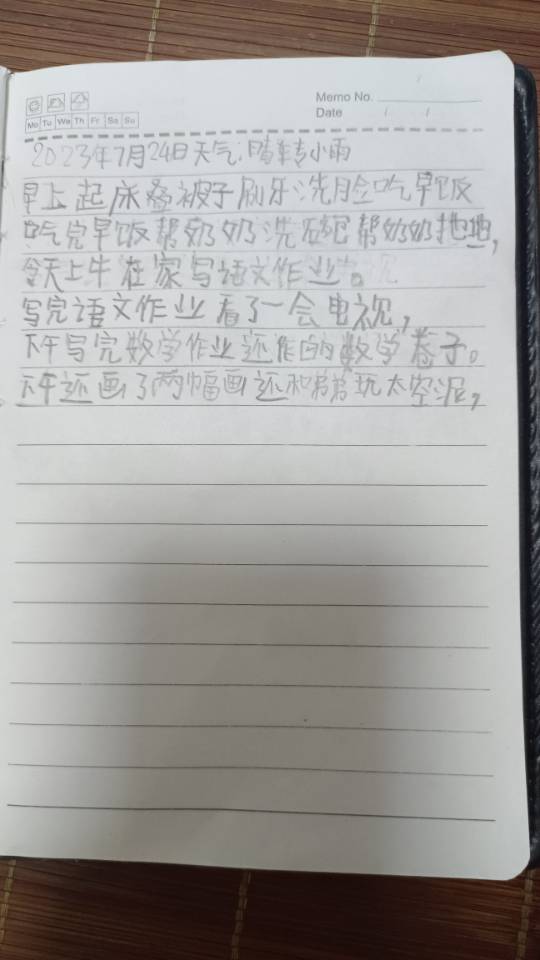 Memo No.
Date / /
Mo Tu We Th Fr Sa Su
2023年7月24日天气:晴转小雨
早上起床叠被子刷牙洗脸吃早饭
吃完早饭帮奶奶洗碗帮奶奶拖地,
今天上午在家写语文作业。
写完语文作业看了一会电视,
下午写完数学作业还作的数学卷子。
下午还画了两幅画还和弟弟玩太空泥,